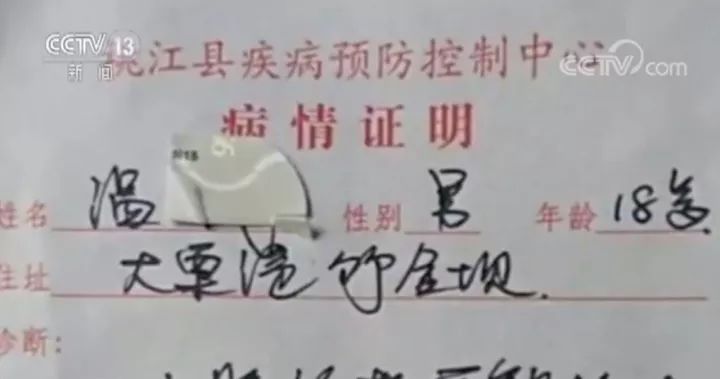 CCTV 13 新闻
CCTV.com
桃江县疾病预防控制中心
病情证明
姓名 温 性别 男 年龄 18岁
住址 大栗港竹金坝.
诊断: